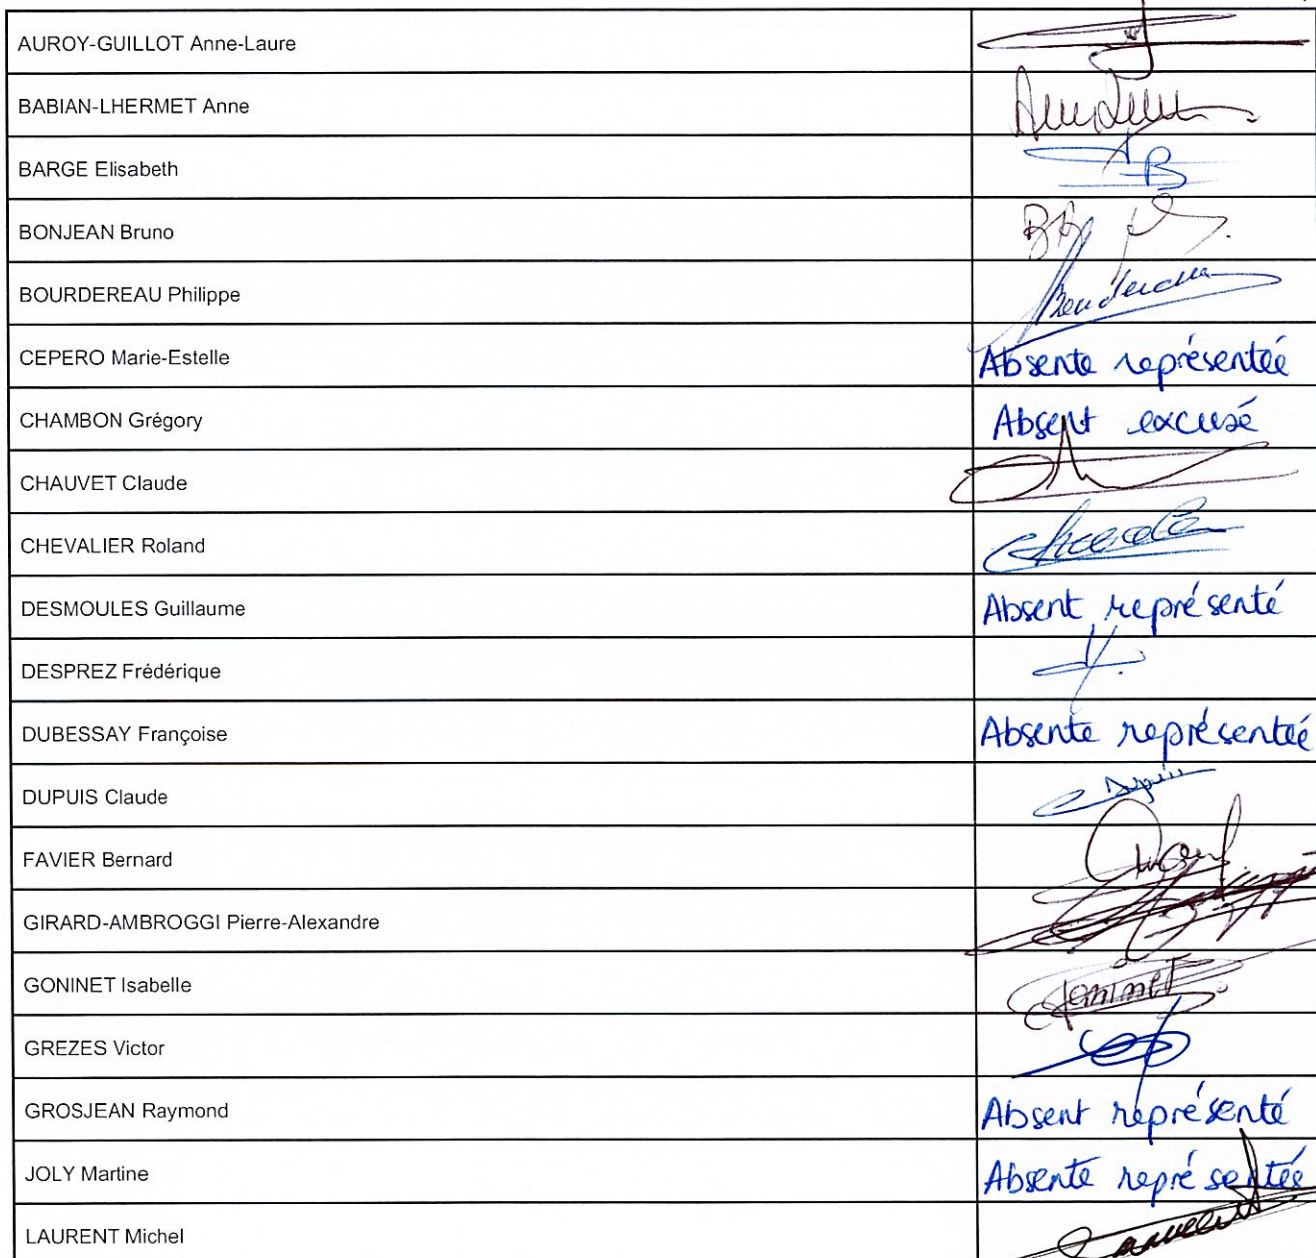 AUROY-GUILLOT Anne-Laure
BABIAN-LHERMET Anne
BARGE Elisabeth
BONJEAN Bruno
BOURDEREAU Philippe
CEPERO Marie-Estelle Absente représentée
CHAMBON Grégory Absent excusé
CHAUVET Claude
CHEVALIER Roland
DESMOULES Guillaume Absent représenté
DESPREZ Frédérique
DUBESSAY Françoise Absente représentée
DUPUIS Claude
FAVIER Bernard
GIRARD-AMBROGGI Pierre-Alexandre
GONINET Isabelle Goninet
GREZES Victor
GROSJEAN Raymond Absent représenté
JOLY Martine Absente représentée
LAURENT Michel